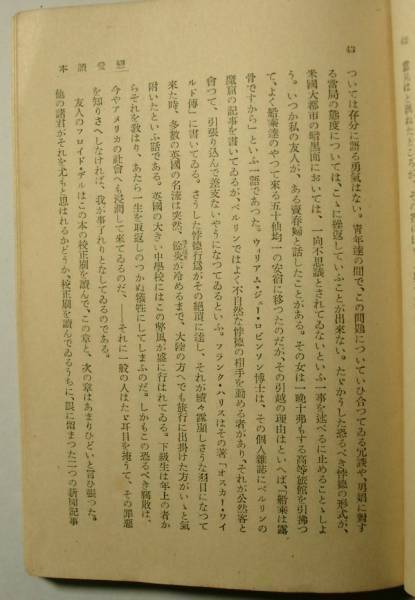 ついては存分に語る勇氣はない。青年達の間で、この問題についていひ合つてゐる冗談や、男娼に對す
る當局の態度については、こゝに繰返していふことが出來ない。たゞかうした恐るべき悖德の形式が、
米國大都市の暗黑面においては、一向不思議とされてゐないといふ一事を述べるに止めることゝしよ
う。いつか私の友人が、ある賣春婦と話したことがある。その女は一晩十弗もする高等旅館を引拂つ
て、よく船乘達のやつて來る五十仙均一の安宿に移つたのだが、その引越の理由はといへば、「船乘は露
骨ですから」といふ一語であつた。ウィリアム・ジェー・ロビンソン博士は、その個人雜誌にベルリンの
魔窟の記事を書いてゐるが、ベルリンではよく不自然な悖德の相手を勸める者があり、それが公然客と
會つて、引張り込んで差支ないやうになつてゐるといふ。フランク・ハリスはその著「オスカー・ワイ
ルド傳」に書いてゐる。さうした悖德行爲がその絕頂に達し、それが續々露顯しさうな羽目になつて
來た時、多數の英國の名流は突然、餘炎が冷めるまで、大陸の方へでも旅行に出掛けた方がいゝと氣
附いたといふ話である。英國の大きい中學校にはこの弊風が盛に行はれてゐる。下級生は年上の者か
らそれを敎はり、あたら一生を取返しのつかぬ犧牲にしてしまふのだ。しかもこの恐るべき腐敗は、
今やアメリカの社會へも浸潤して來てゐるのだ、――それに一般の人はたゞ耳目を掩うて、その罪惡
を知りさへしなければ、我が事了れりとなしてゐるのである。
友人のフロイド・デルはこの本の校正刷を讀んで、この章と、次の章はあまりひどいと言ひ張つた。
他の諸君がそれを尤もと思はれるかどうか、校正刷を讀んでゐるうちに、眼に留まつた二つの新聞記事